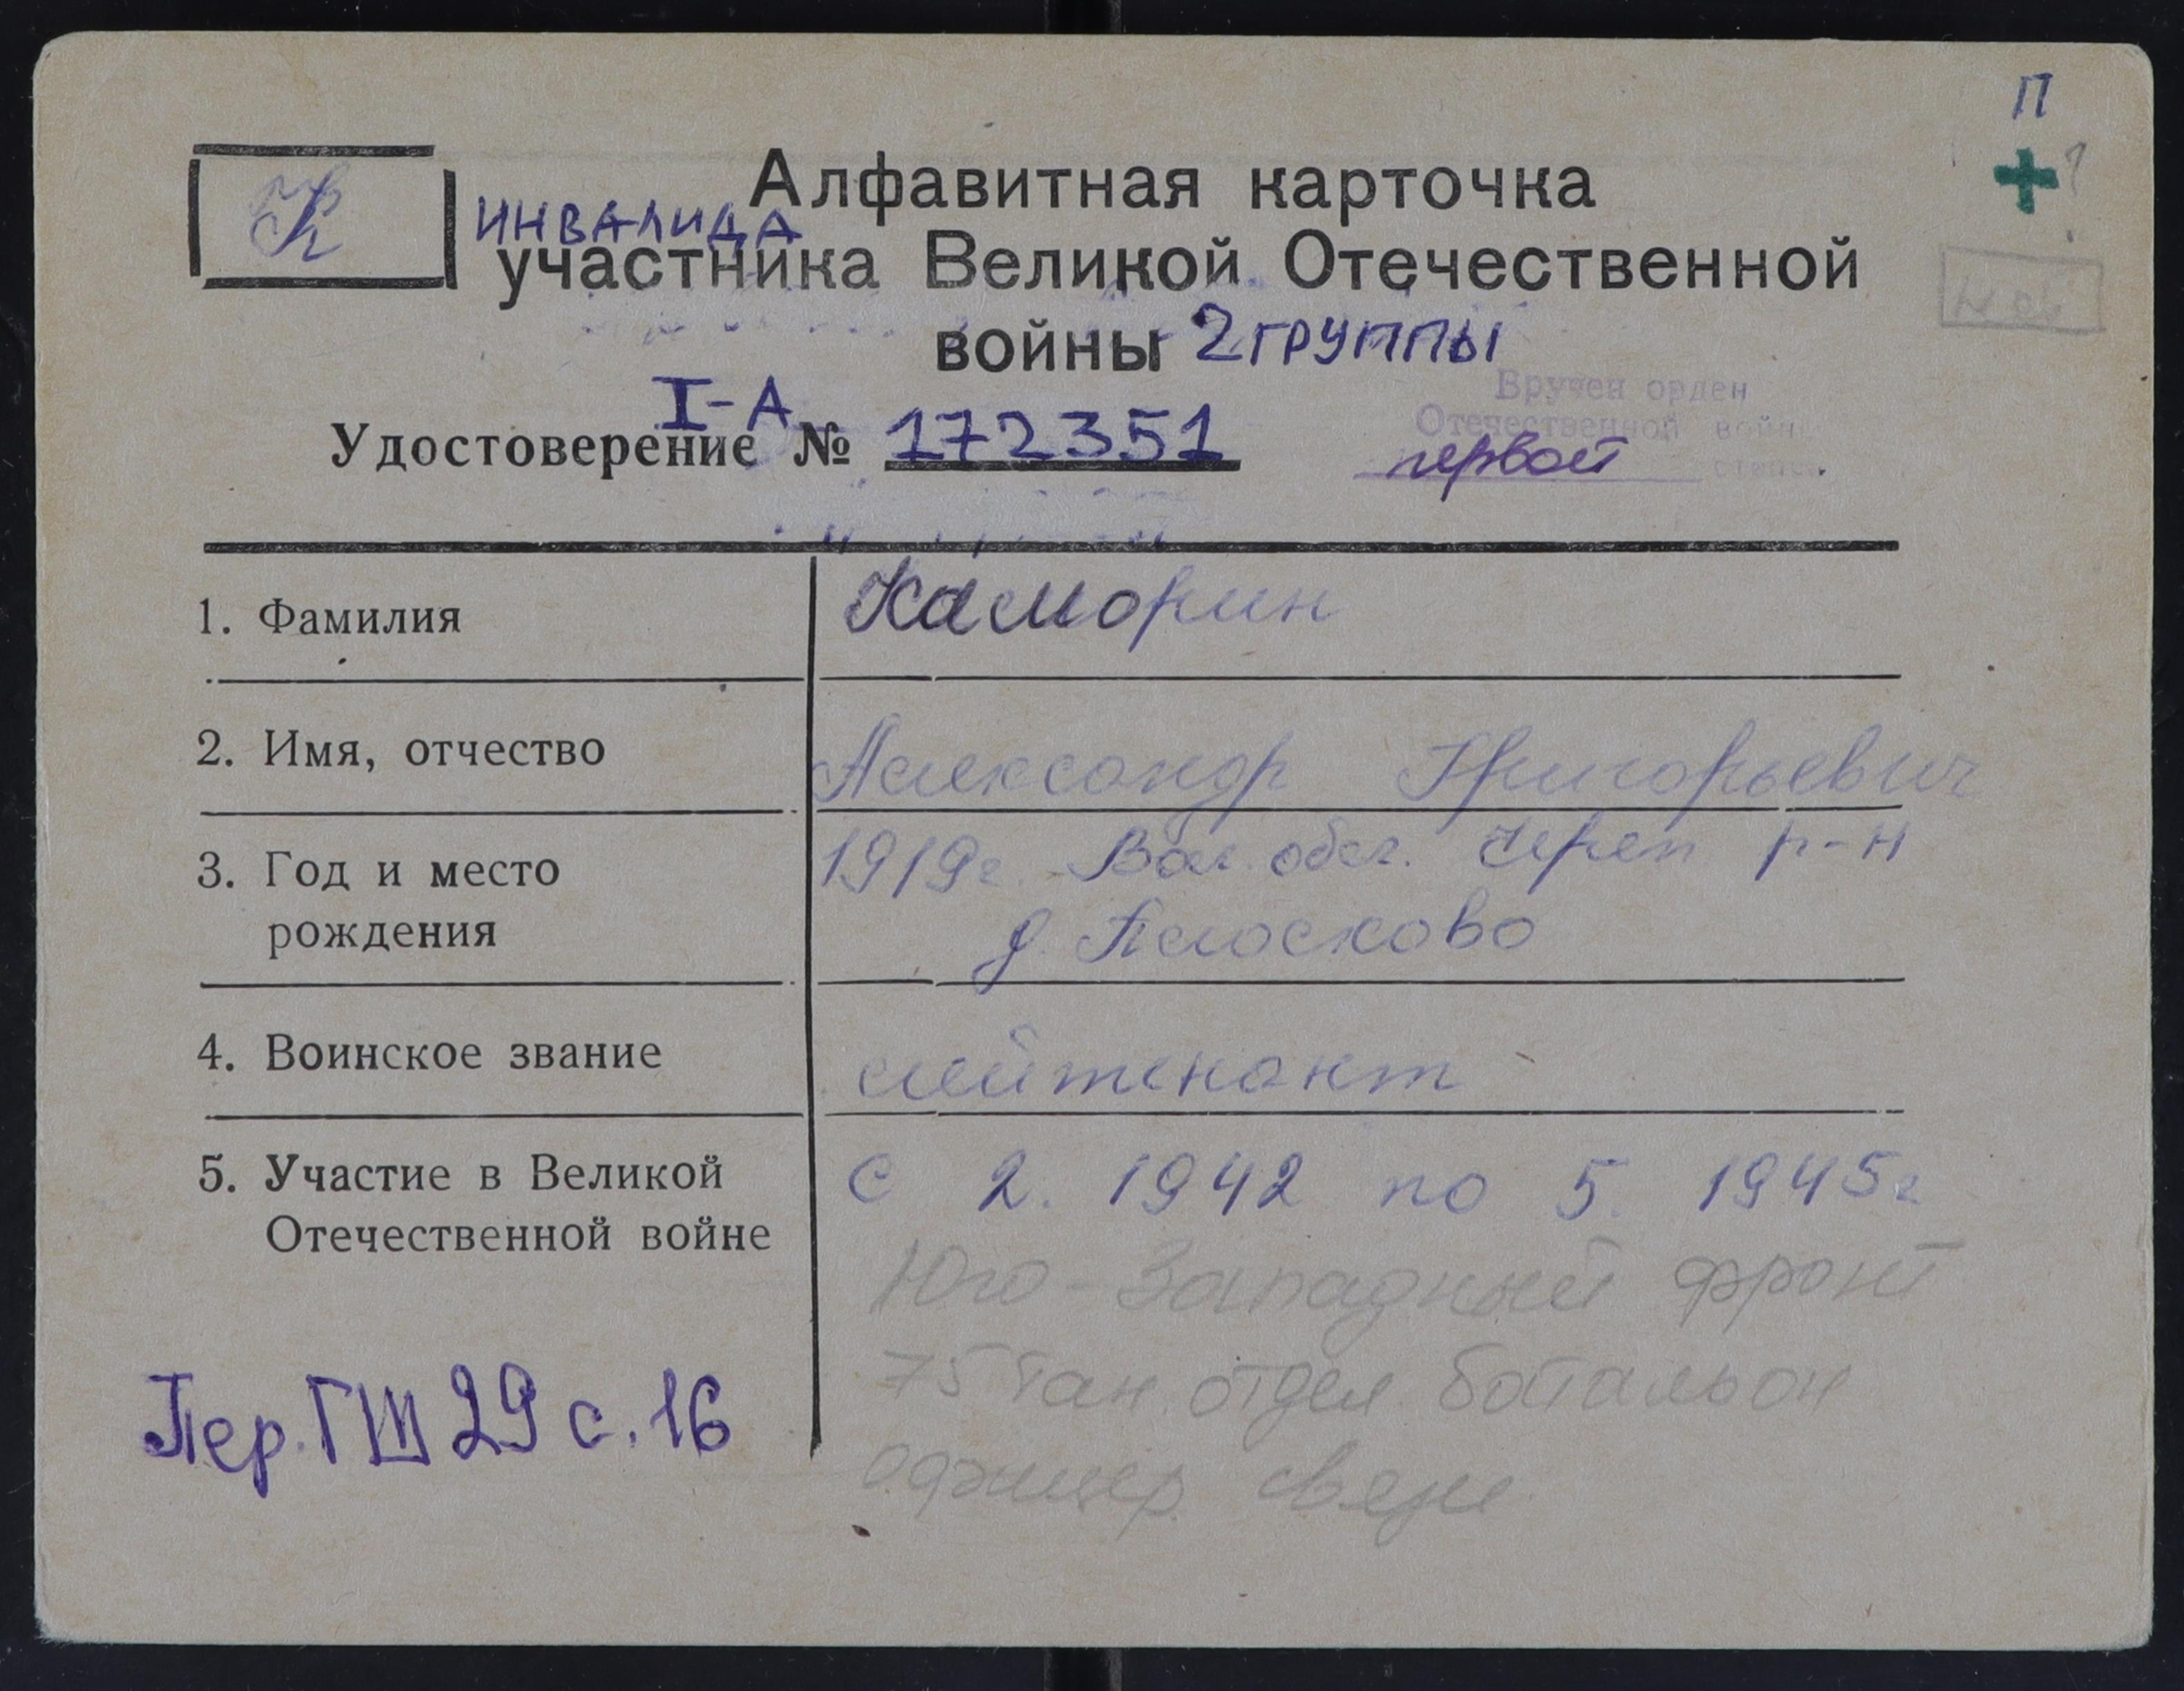 П
К
Алфавитная карточка
ИНВАЛИДА
участника Великой Отечественной
войны 2 ГРУППЫ
I-А
Удостоверение № 172351
Вручен орден
Отечественной войны
первой степени
1. Фамилия Каморин
2. Имя, отчество Александр Григорьевич
3. Год и место рождения 1919г. Вол. обл. Череп р-н
д. Плосково
4. Воинское звание лейтенант
5. Участие в Великой Отечественной войне с 2. 1942 по 5. 1945г
Юго-Западный фронт
75 тан. отдел. батальон
офицер связи
Пер. ГШ 29 с. 16